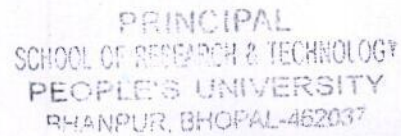 PRINCIPAL
SCHOOL OF RESEARCH & TECHNOLOGY
PEOPLE'S UNIVERSITY
BHANPUR, BHOPAL-462037